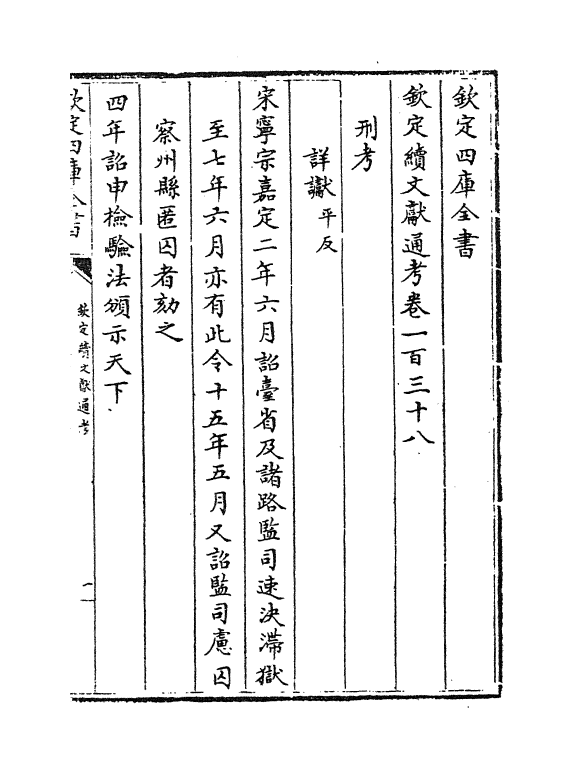 欽定四庫全書
欽定續文獻通考卷一百三十八
刑考
詳讞平反
宋寧宗嘉定二年六月詔臺省及諸路監司速決滯獄
至七年六月亦有此令十五年五月又詔監司慮囚
察州縣匿囚者劾之
四年詔申檢驗法頒示天下
欽定四庫全書
欽定續文獻通考
一